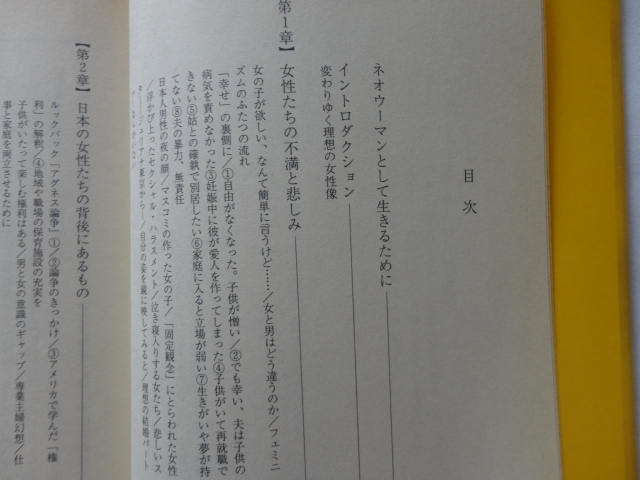 目次
ネオウーマンとして生きるために
イントロダクション
変わりゆく理想の女性像
第1章】 女性たちの不満と悲しみ
女の子が欲しい、なんて簡単に言うけど……/女と男はどう違うのか/フェミニ
ズムのふたつの流れ
「幸せ」の裏側に/①自由がなくなった。子供が憎い/②でも幸い、夫は子供の
病気を責めなかった③妊娠中に彼が愛人を作ってしまった④子供がいて再就職で
きない⑤姑との確執で別居したい⑥家庭に入ると立場が弱い⑦生きがいや夢が持
てない⑧夫の暴力、無責任
日本人男性の夜の顔/マスコミの作った女の子/「固定観念」にとらわれた女性
/浮かび上ったセクシャル ハラスメント/泣き寝入りする女たち/悲しいス
自分の姿を鏡に映してみると/理想の結婚パート
【第2章】 日本の女性たちの背後にあるもの
ルックバック「アグネス論争」①/②論争のきっかけ/③アメリカで学んだ「権
利」の解釈/④地域や職場の保育施設の充実を
子供がいたって楽しむ権利はある/男と女の意識のギャップ/専業主婦幻想/仕
事と家庭を両立させるために